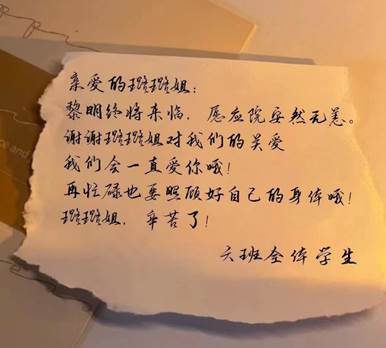 亲爱的璐璐姐：
黎明终将来临，愿应院安然无恙。
谢谢璐璐姐对我们的关爱
我们会一直爱你哦！
再忙碌也要照顾好自己的身体哦！
璐璐姐，辛苦了！
六班全体学生
and